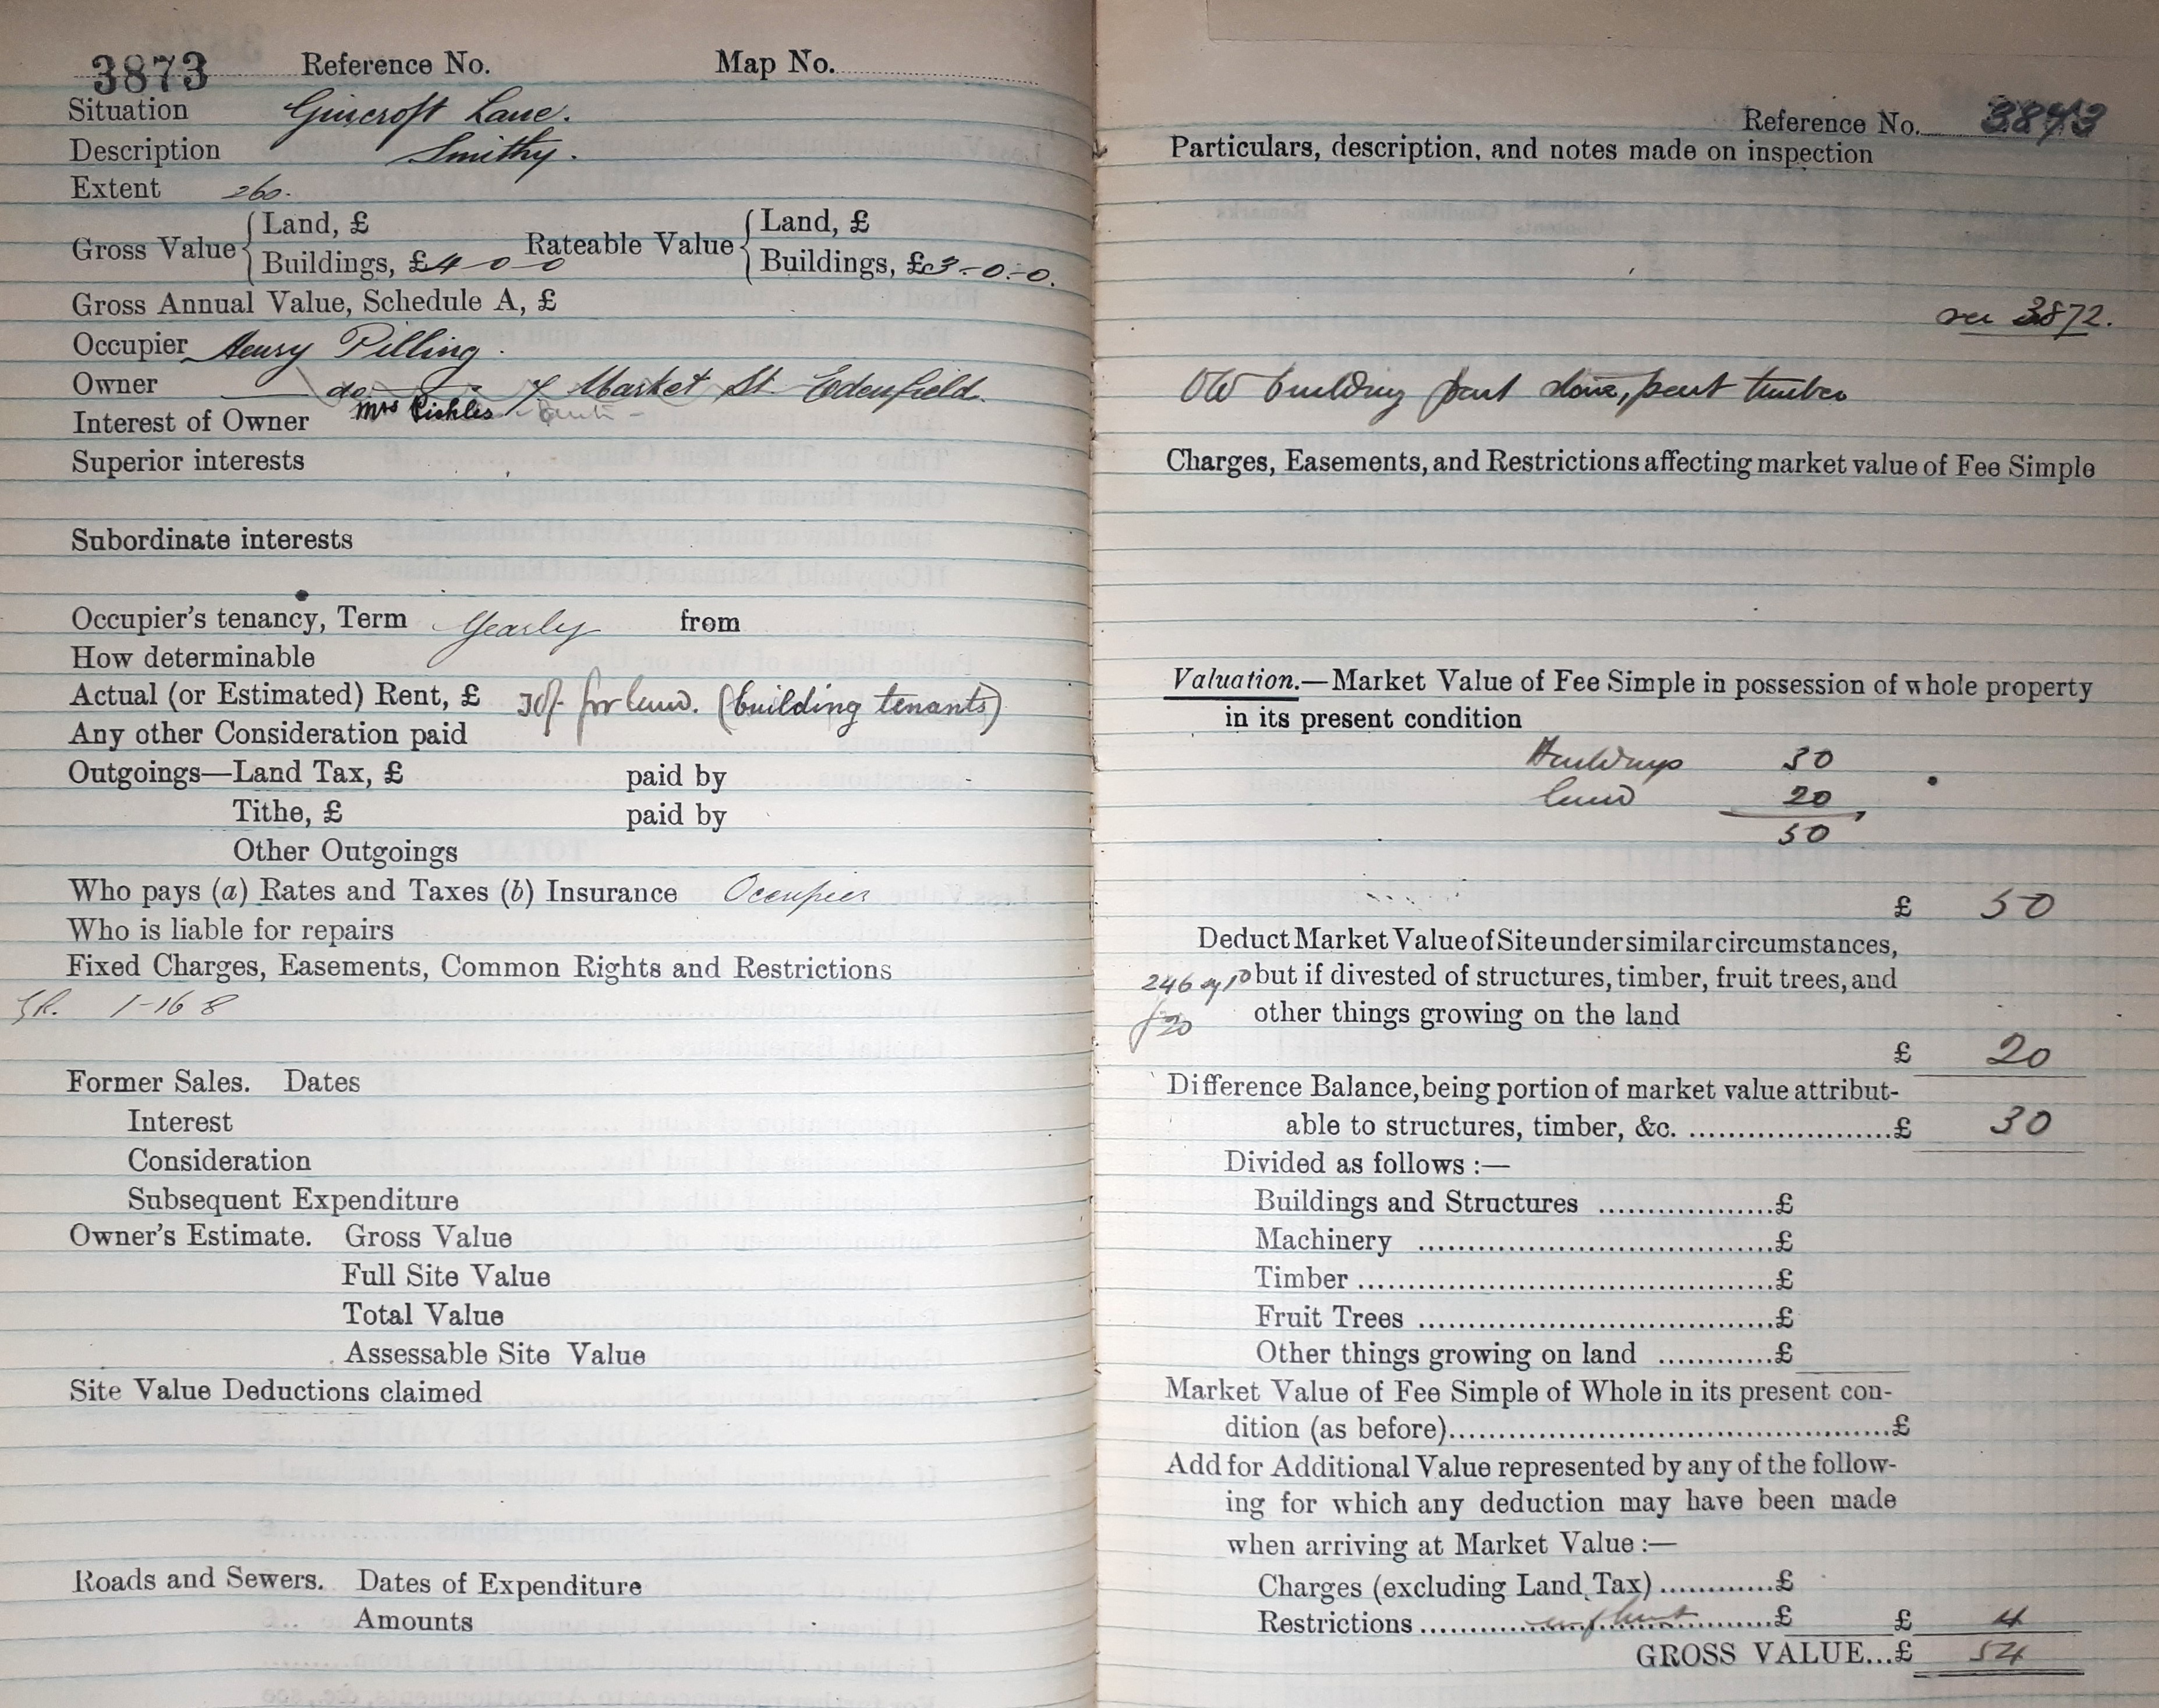 3873 Reference No. Map No.
Situation Gincroft Lane.
Description Smithy.
Extent 260.
Gross Value { Land, £
Buildings, £4-0-0
Rateable Value { Land, £
Buildings, £3-0-0.
Gross Annual Value, Schedule A, £
Occupier Henry Pilling.
Owner do 7 Market St. Edenfield.
Mrs Pickles
Interest of Owner
Superior interests
Subordinate interests
Occupier's tenancy, Term Yearly from
How determinable
Actual (or Estimated) Rent, £ 30/- for land. (building tenants)
Any other Consideration paid
Outgoings—Land Tax, £ paid by
Tithe, £ paid by
Other Outgoings
Who pays (a) Rates and Taxes (b) Insurance Occupier
Who is liable for repairs
Fixed Charges, Easements, Common Rights and Restrictions
1-16 8
Former Sales. Dates
Interest
Consideration
Subsequent Expenditure
Owner's Estimate. Gross Value
Full Site Value
Total Value
Assessable Site Value
Site Value Deductions claimed
Roads and Sewers. Dates of Expenditure
Amounts
Reference No. 3873
Particulars, description, and notes made on inspection
see 3872.
Old building part stone, part timber
Charges, Easements, and Restrictions affecting market value of Fee Simple
Valuation.—Market Value of Fee Simple in possession of whole property
in its present condition
Buildings 30
land 20
50
£ 50
Deduct Market Value of Site under similar circumstances,
246 but if divested of structures, timber, fruit trees, and
£20 other things growing on the land
£ 20
Difference Balance, being portion of market value attribut-
able to structures, timber, &c. £ 30
Divided as follows :—
Buildings and Structures £
Machinery £
Timber £
Fruit Trees £
Other things growing on land £
Market Value of Fee Simple of Whole in its present con-
dition (as before) £
Add for Additional Value represented by any of the follow-
ing for which any deduction may have been made
when arriving at Market Value :—
Charges (excluding Land Tax) £
Restrictions £ £ 4
GROSS VALUE...£ 54